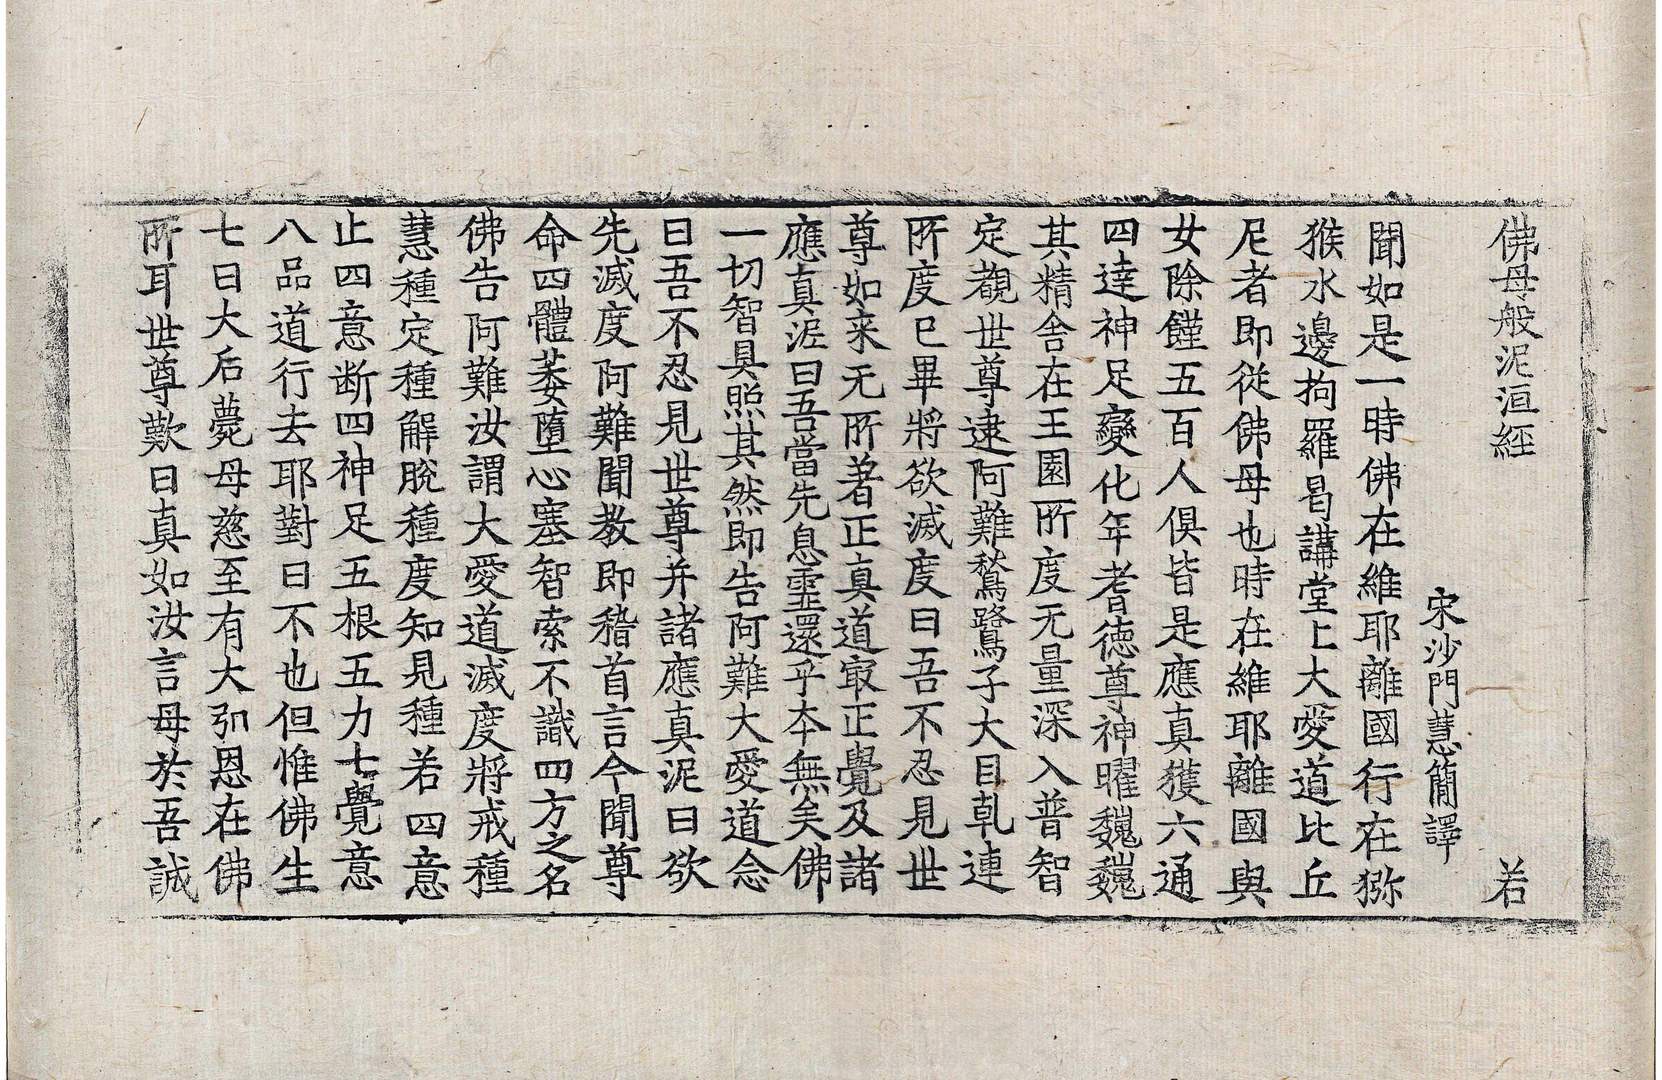 佛母般泥洹經 若
宋沙門慧簡譯
聞如是一時佛在維耶離國行在猕
猴水邊拘羅曷講堂上大愛道比丘
尼者即從佛母也時在維耶離國與
女除饉五百人俱皆是應真獲六通
四達神足變化年耆德尊神曜巍巍
其精舍在王園所度无量深入普智
定覩世尊逮阿難鶖鷺子大目乹連
所度已畢將欲滅度曰吾不忍見世
尊如来无所著正真道㝡正覺及諸
應真泥曰吾當先息靈還乎本無矣佛
一切智具照其然即告阿難大愛道念
曰吾不忍見世尊并諸應真泥曰欲
先滅度阿難聞教即稽首言今聞尊
命四體萎墮心塞智索不識四方之名
佛告阿難汝謂大愛道滅度將戒種
慧種定種解脫種度知見種若四意
止四意断四神足五根五力七覺意
八品道行去耶對曰不也但惟佛生
七日大后薨母慈至有大弘恩在佛
所耳世尊歎曰真如汝言母於吾誠